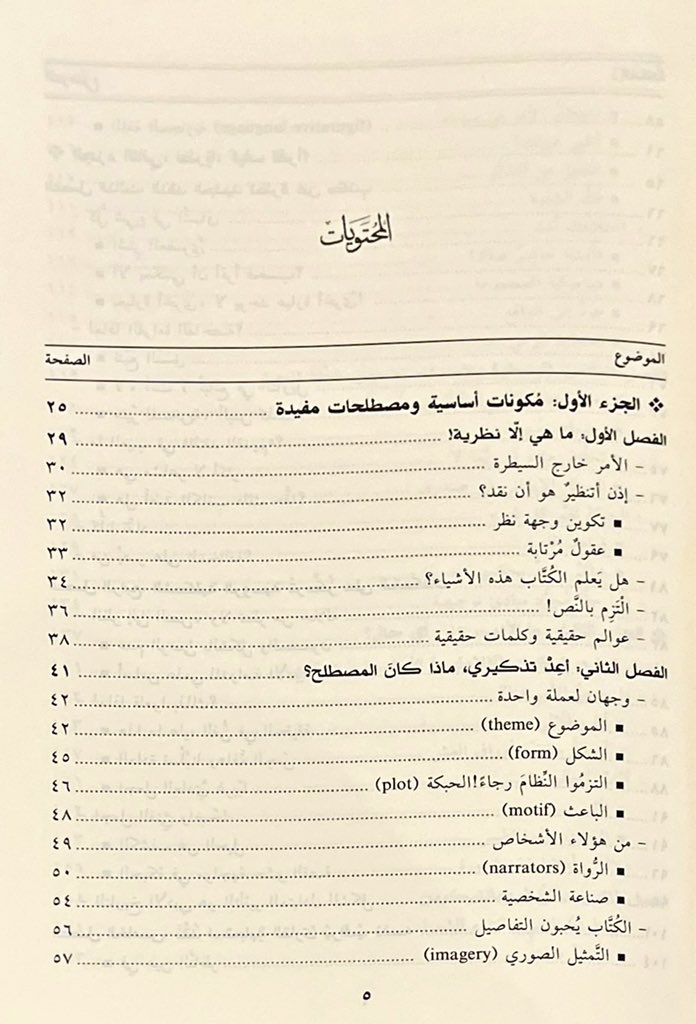 المُحتَوَيات
الموضوع الصفحة
❖ الجزء الأول: مُكونات أساسية ومصطلحات مفيدة ........ ٢٥
الفصل الأول: ما هي إلّا نظرية! ........ ٢٩
- الأمر خارج السيطرة ........ ٣٠
- إذن أتنظيرٌ هو أن نقد؟ ........ ٣٢
▪ تكوين وجهة نظر ........ ٣٢
▪ عقولٌ مُرْتابة ........ ٣٣
- هل يَعلم الكُتَّاب هذه الأشياء؟ ........ ٣٤
- الْتَزِم بالنَّص! ........ ٣٦
- عوالم حقيقية وكلمات حقيقية ........ ٣٨
الفصل الثاني: أعِدْ تذكيري، ماذا كانَ المصطلح؟ ........ ٤١
- وجهان لعملة واحدة ........ ٤٢
▪ الموضوع (theme) ........ ٤٢
▪ الشكل (form) ........ ٤٥
▪ التزمُوا النِّظامَ رجاءً!الحبكة (plot) ........ ٤٦
▪ الباعث (motif) ........ ٤٨
- من هؤلاء الأشخاص ........ ٤٩
▪ الرُّواة (narrators) ........ ٥٠
▪ صناعة الشخصية ........ ٥٤
- الكُتَّاب يُحبون التفاصيل ........ ٥٦
▪ التَّمثيل الصوري (imagery) ........ ٥٧
٥